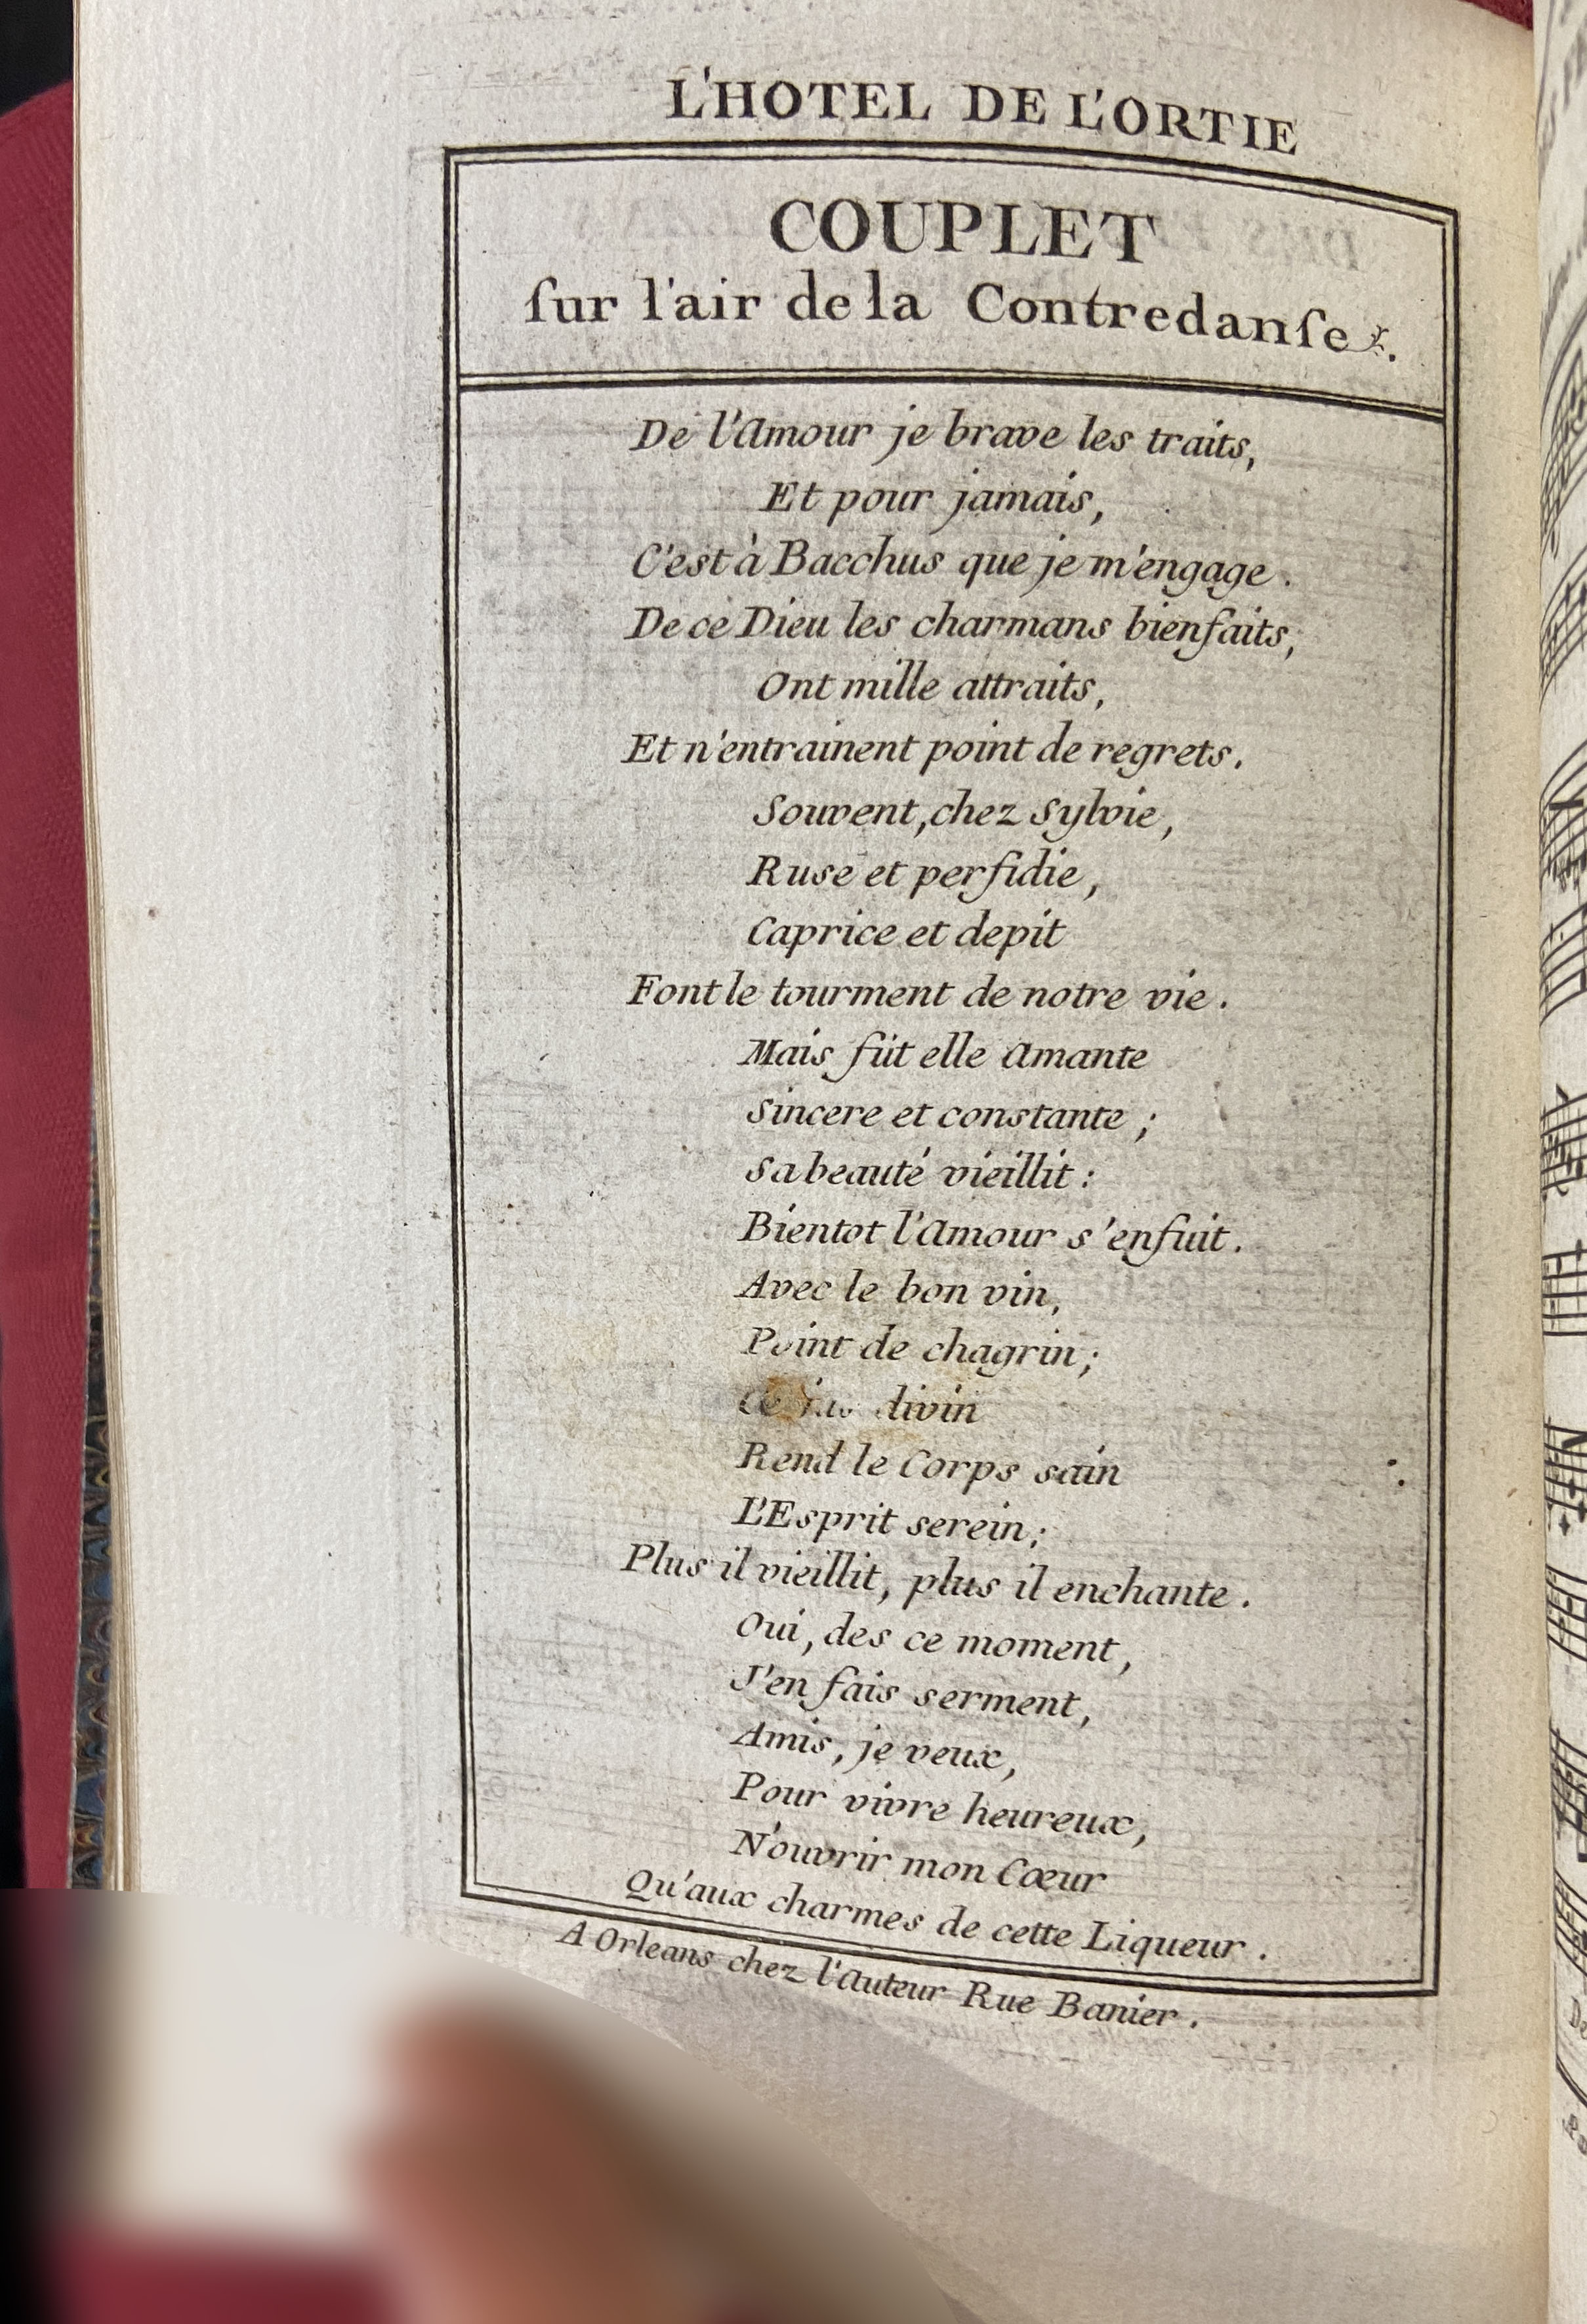 L'HOTEL DE L'ORTIE
COUPLET
ſur l'air de la Contredanſe.
De l'Amour je brave les traits,
Et pour jamais,
C'est à Bacchus que je m'engage.
De ce Dieu les charmans bienfaits,
Ont mille attraits,
Et n'entrainent point de regrets.
Souvent, chez Sylvie,
Ruse et perfidie,
Caprice et depit
Font le tourment de notre vie.
Mais fût elle Amante
Sincere et constante;
Sa beauté vieillit:
Bientot l'Amour s'enfuit.
Avec le bon vin,
Point de chagrin;
Ce jus divin
Rend le Corps sain
L'Esprit serein;
Plus il vieillit, plus il enchante.
Oui, des ce moment,
J'en fais serment,
Amis, je veux,
Pour vivre heureux,
N'ouvrir mon Cœur
Qu'aux charmes de cette Liqueur.
A Orleans chez l'Auteur Rue Banier.